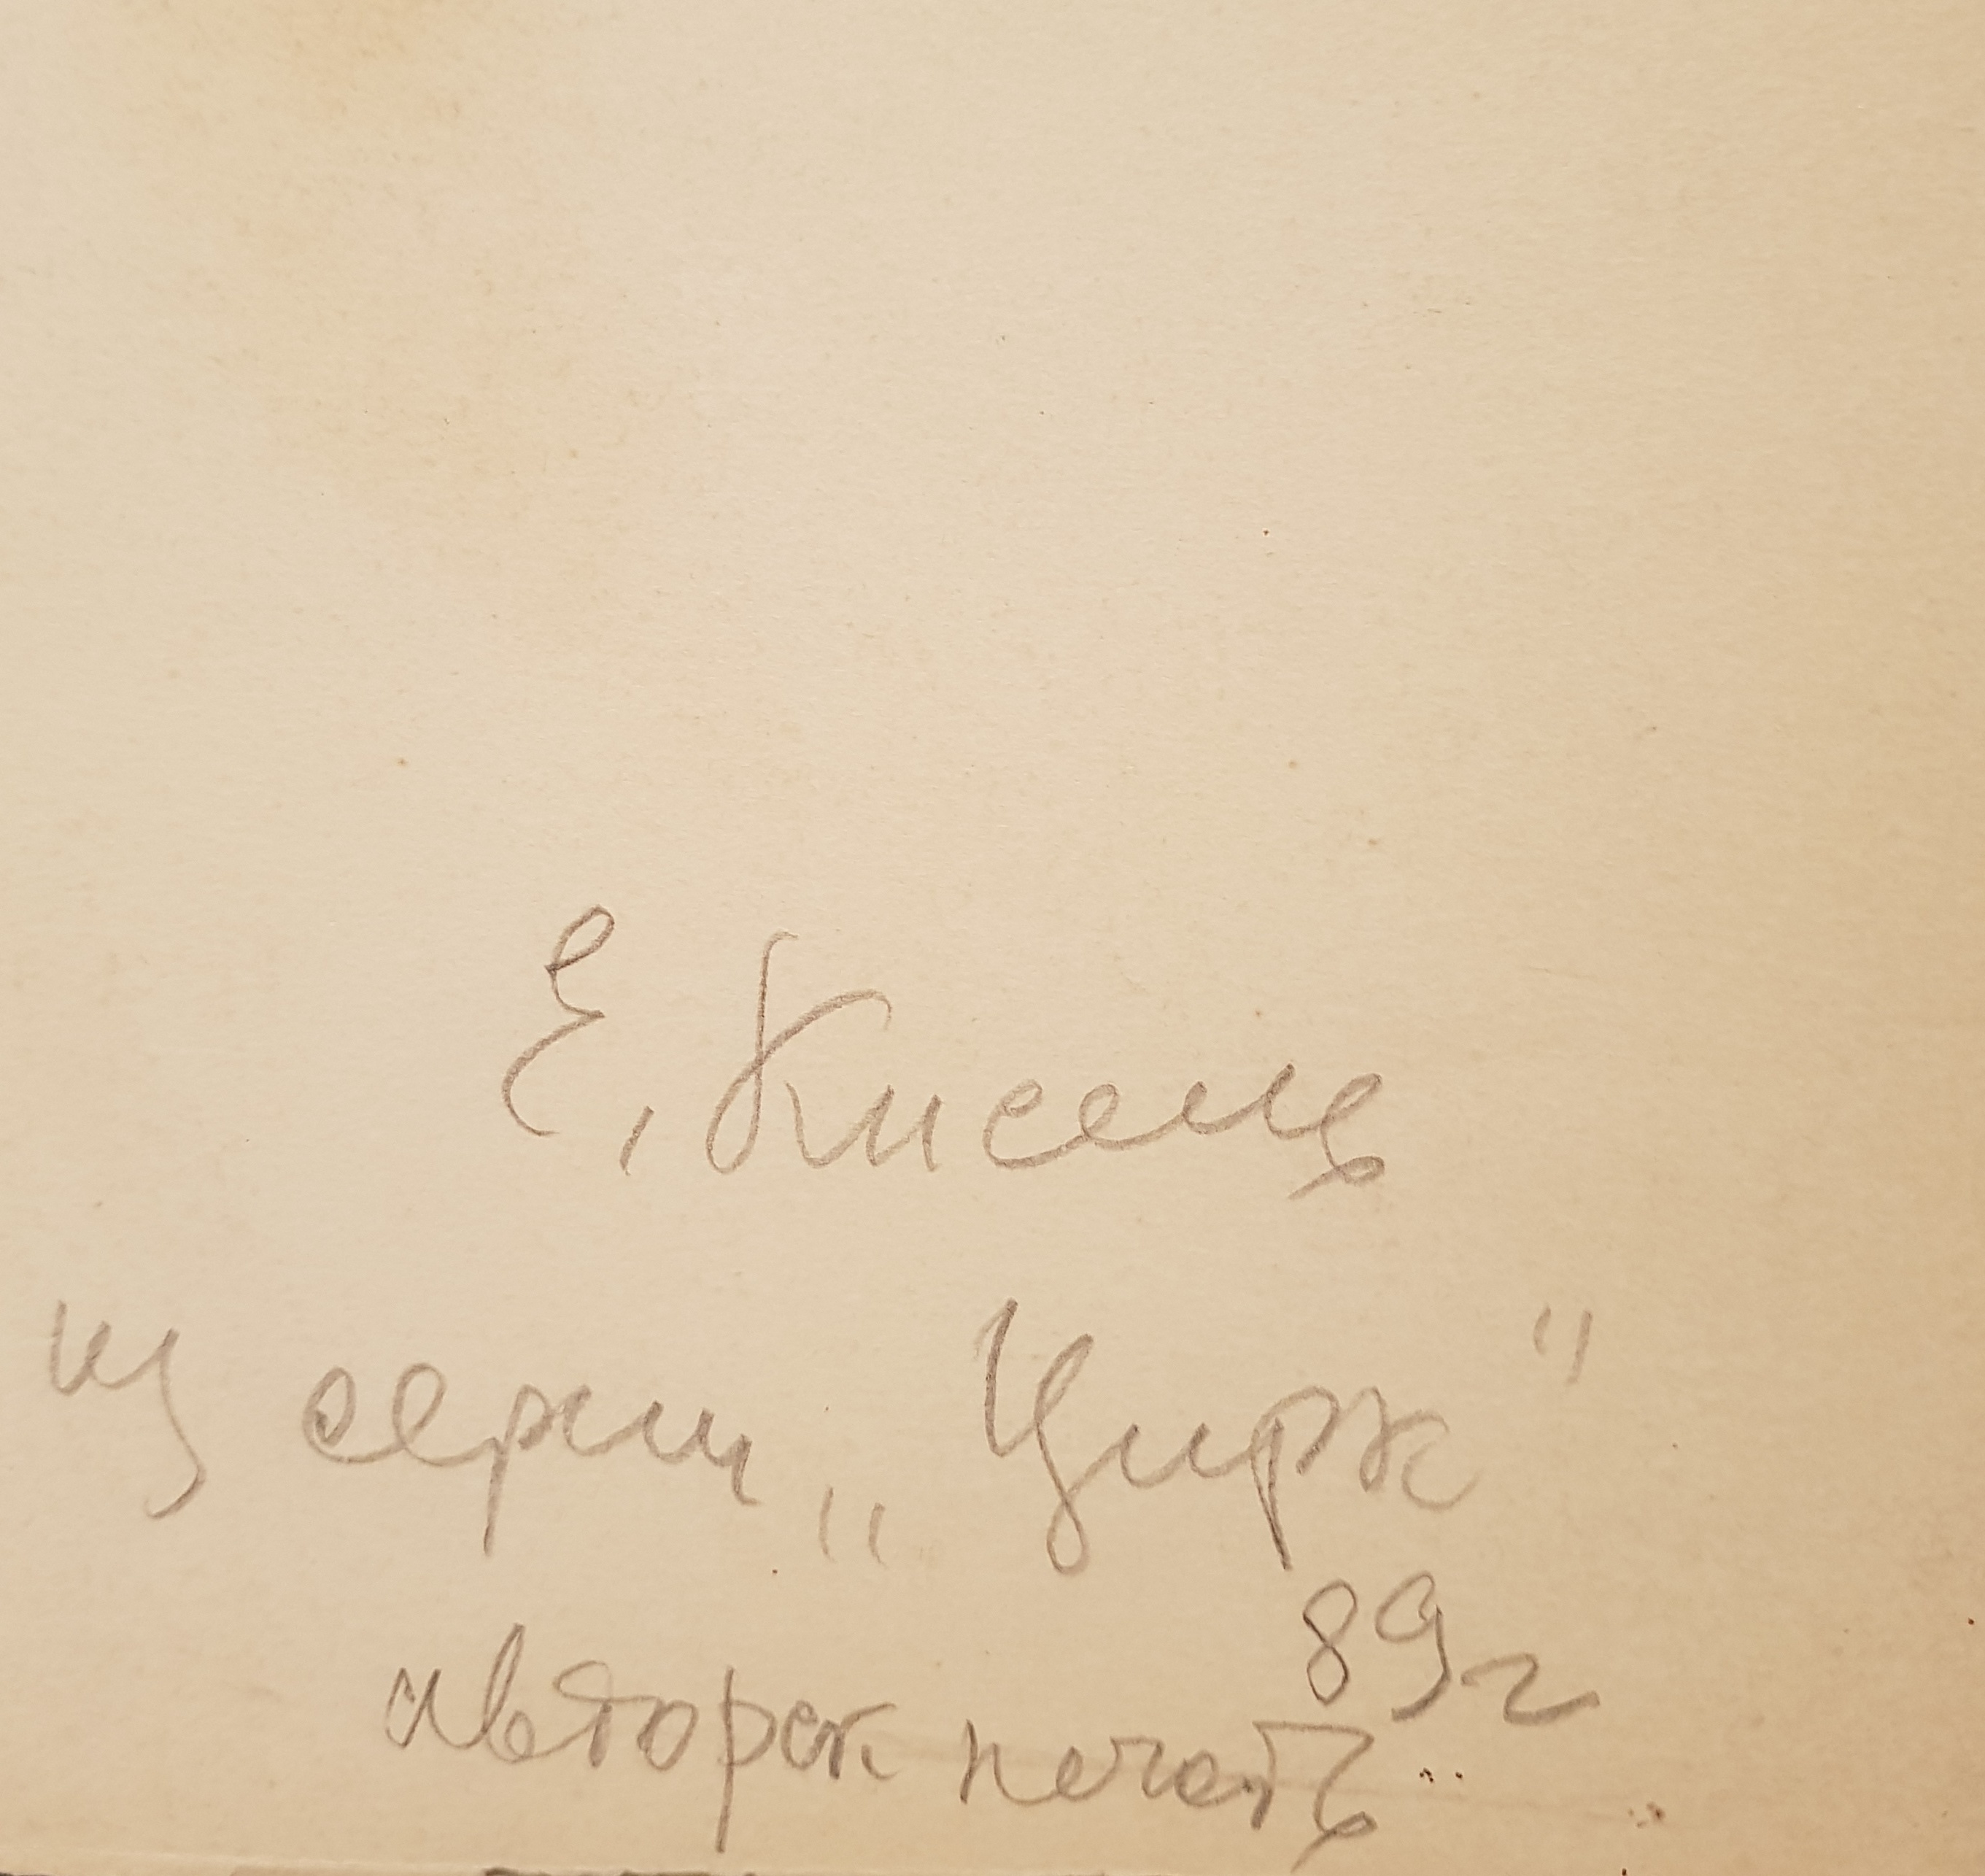 Е. Кисель
из серии „Цирк"
89г
авторск печать